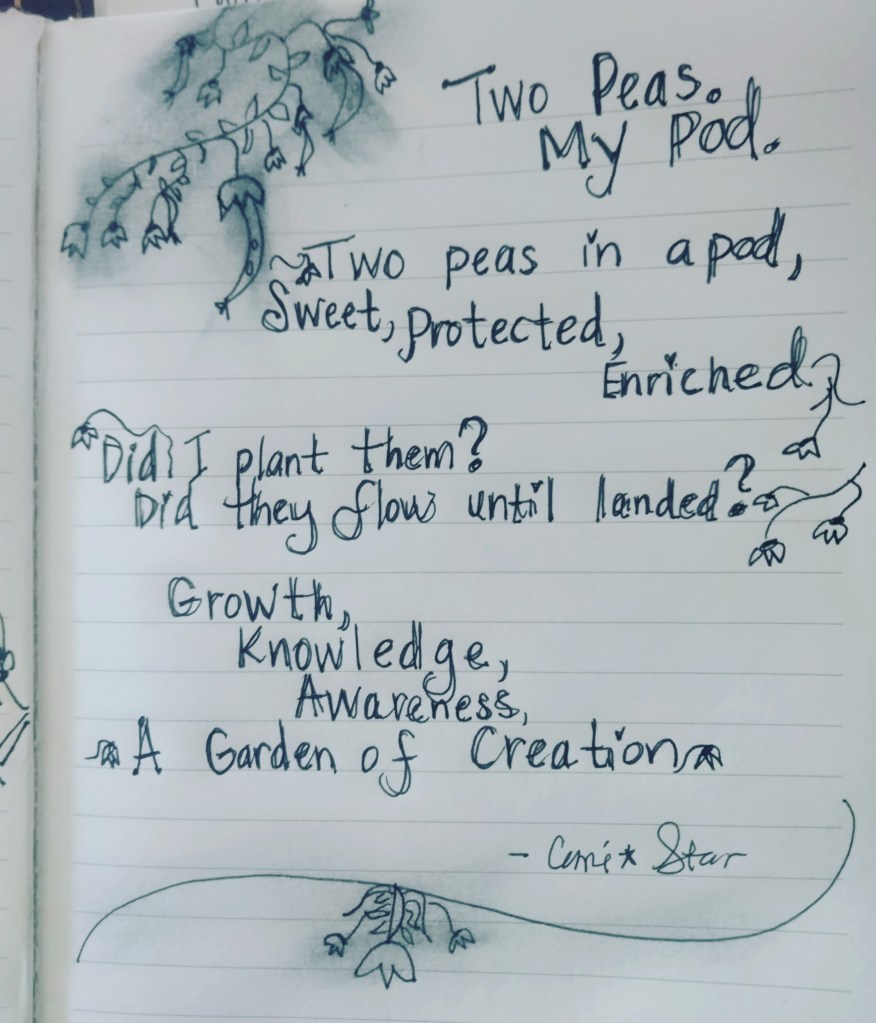 Two Peas.
My Pod.
Two peas in a pod,
Sweet, protected,
Enriched
Did I plant them?
Did they flow until landed?
Growth,
Knowledge,
Awareness,
A Garden of Creation
- Star